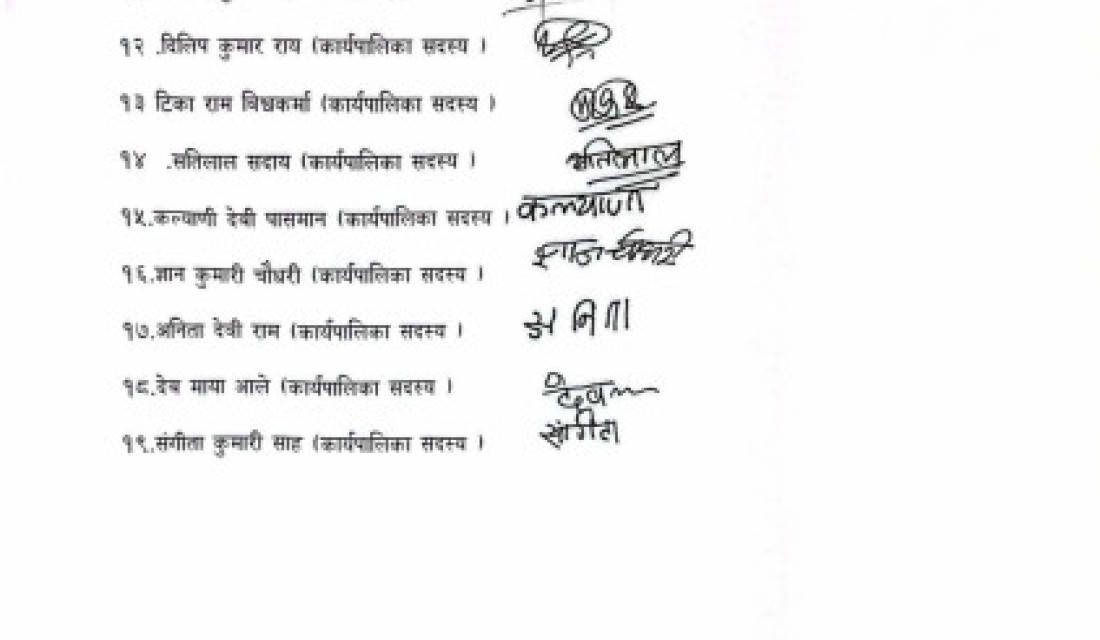 १२ .दिलिप कुमार राय (कार्यपालिका सदस्य )
१३ टिका राम विश्वकर्मा (कार्यपालिका सदस्य )
१४ .सतिलाल सदाय (कार्यपालिका सदस्य ) सतिलाल
१५.कल्याणी देवी पासमान (कार्यपालिका सदस्य ) कल्याणी
१६.ज्ञान कुमारी चौधरी (कार्यपालिका सदस्य )
१७.अनिता देवी राम (कार्यपालिका सदस्य ) अनिता
१८.देब माया आले (कार्यपालिका सदस्य )
१९.संगीता कुमारी साह (कार्यपालिका सदस्य ) संगीता